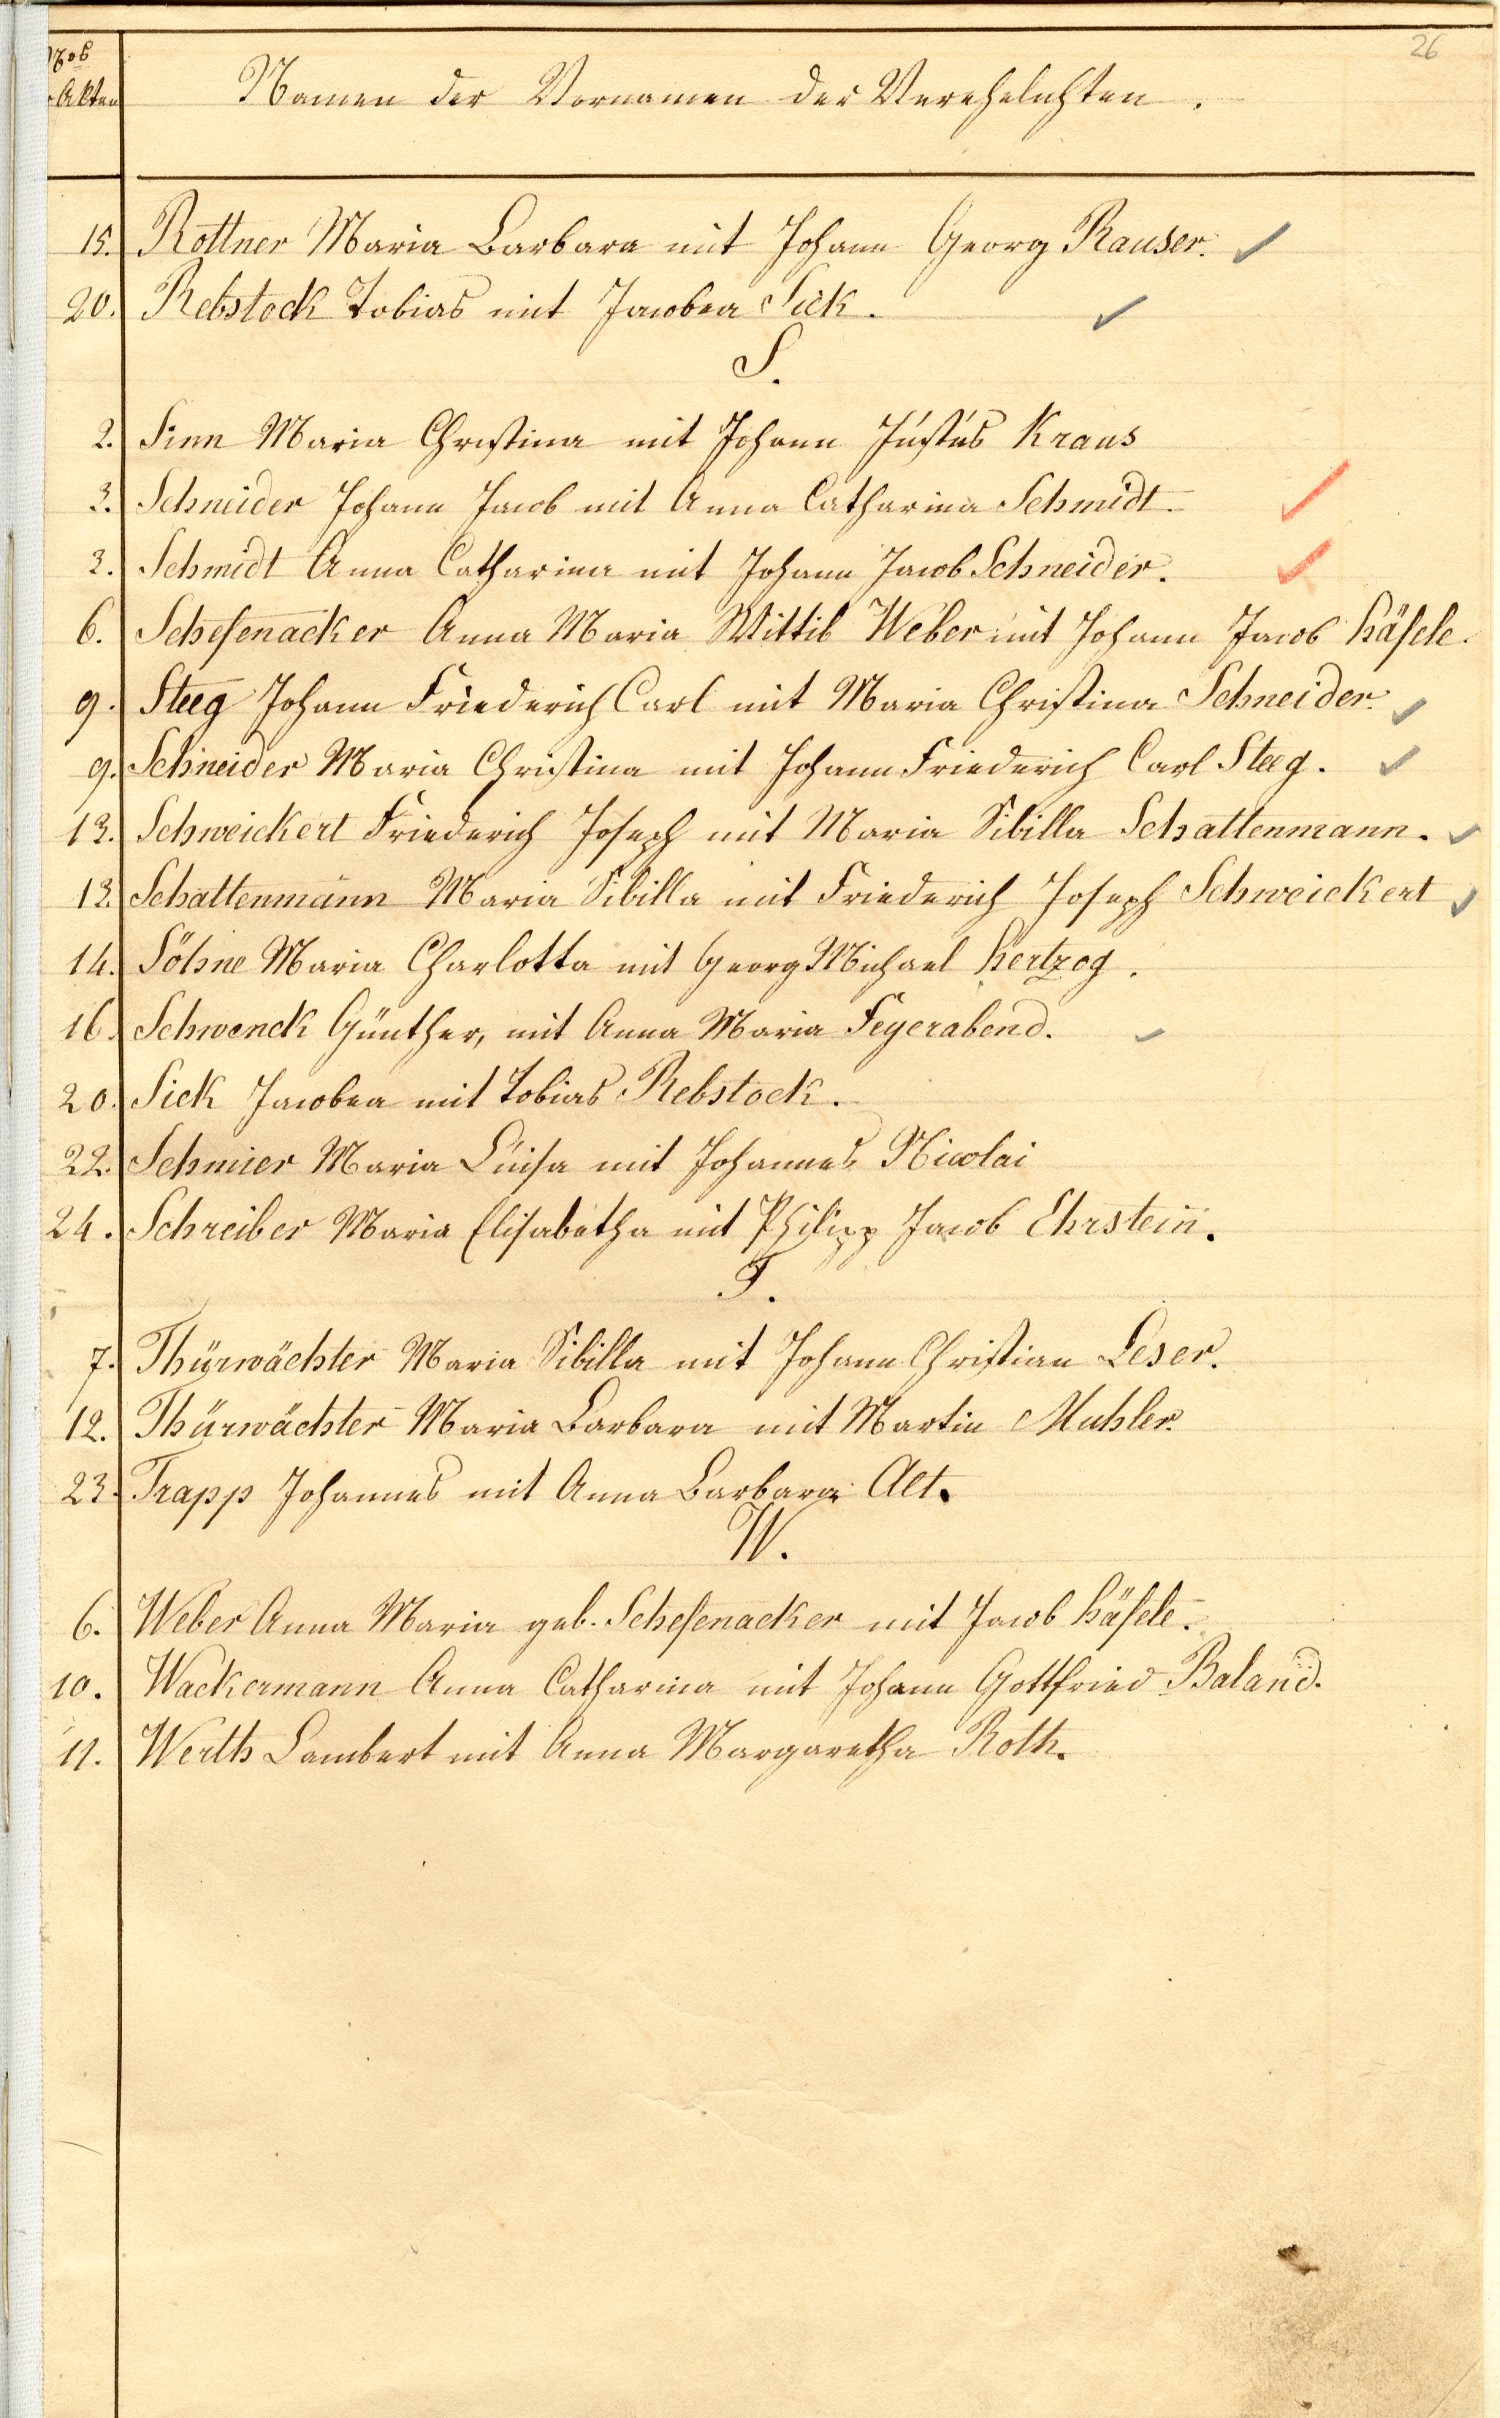 26
Nos
Akten
Namen der Vornamen der Verehelichten.
15. Rottner Maria Barbara mit Johann Georg Rauser.
20. Rebstock Tobias mit Jacobea Sick.
S.
2. Sinn Maria Christina mit Johann Justus Kraus
3. Schneider Johann Jacob mit Anna Catharina Schmidt.
3. Schmidt Anna Catharina mit Johann Jacob Schneider.
6. Schefenacker Anna Maria Wittib Weber mit Johann Jacob Häfele.
9. Steeg Johann Friederich Carl mit Maria Christina Schneider.
9. Schneider Maria Christina mit Johann Friederich Carl Steeg.
13. Schweickert Friederich Joseph mit Maria Sibilla Schattenmann.
13. Schattenmann Maria Sibilla mit Friederich Joseph Schweickert
14. Söhne Maria Charlotta mit Georg Michael Hertzog.
16. Schwenck Günther, mit Anna Maria Feyerabend.
20. Sick Jacobea mit Tobias Rebstock.
22. Schmier Maria Luisa mit Johannes Nicolai
24. Schreiber Maria Elisabetha mit Philipp Jacob Ehrstein.
T.
7. Thürwächter Maria Sibilla mit Johann Christian Leser.
12. Thürwächter Maria Barbara mit Martin Muhler.
23. Trapp Johannes mit Anna Barbara Alt.
W.
6. Weber Anna Maria geb. Schefenacker mit Jacob Häfele.
10. Wackermann Anna Catharina mit Johann Gottfried Baland.
11. Werth Lambert mit Anna Margaretha Roth.